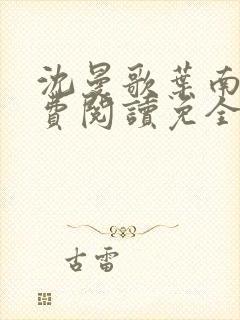 沈曼歌葉南
費閱讀免全
古雷